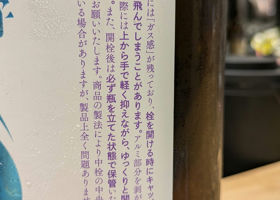 には「ガス感」が残っており、栓を開ける時にキャッ
飛んでしまうことがあります。アルミ部分を剥が
際には上から手で軽く抑えながら、ゆっくりと開
。また、開栓後は必ず瓶を立てた状態で保管いた
お願いいたします。商品の製法により中栓の中央
いる場合がありますが、製品上全く問題ありませ